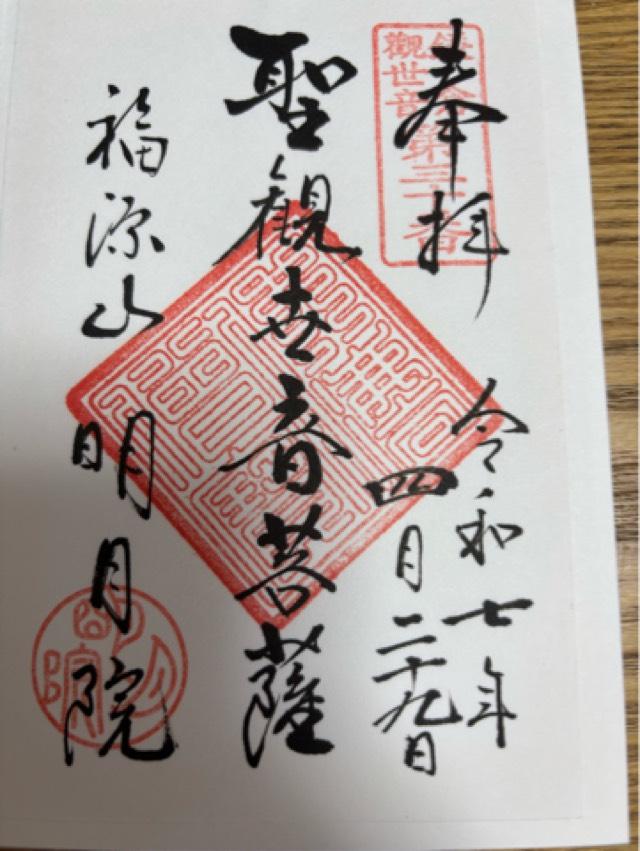 奉拝
令和七年
四月二十九日
聖観世音菩薩
福源山 明月院
觀世音
第三十番